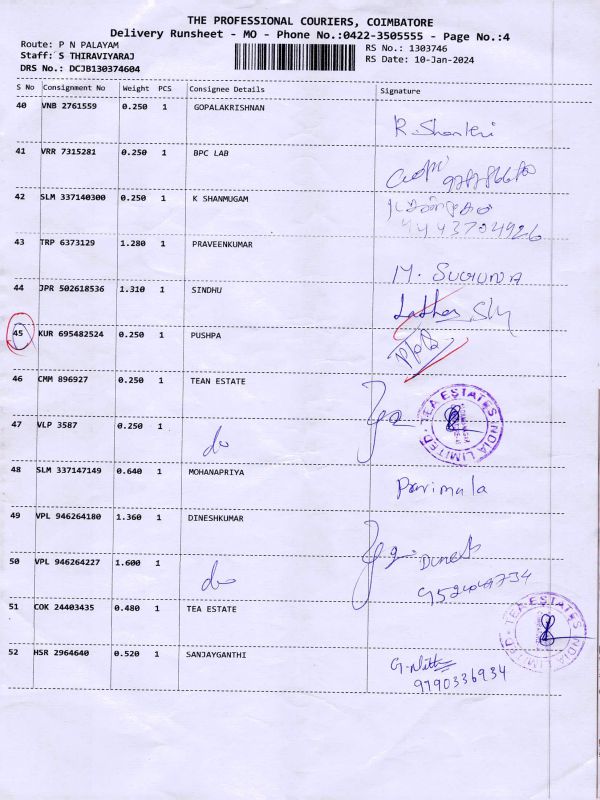 THE PROFESSIONAL COURIERS, COIMBATORE
Delivery Runsheet - MO - Phone No.:0422-3505555 - Page No.:4
Route: P N PALAYAM
Staff: S THIRAVIYARAJ
DRS No.: DCJB130374604
RS No.: 1303746
RS Date: 10-Jan-2024
S No Consignment No Weight PCS Consignee Details Signature
40 VNB 2761559 0.250 1 GOPALAKRISHNAN
R. Shanleri
41 VRR 7315281 0.250 1 BPC LAB
42 SLM 337140300 0.250 1 K SHANMUGAM
9443704926
43 TRP 6373129 1.280 1 PRAVEENKUMAR
M. SUGUNA
44 JPR 502618536 1.310 1 SINDHU
45 KUR 695482524 0.250 1 PUSHPA
46 CMM 896927 0.250 1 TEAN ESTATE
TEA ESTATES INDIA LIMITED
47 VLP 3587 0.250 1 do
48 SLM 337147149 0.640 1 MOHANAPRIYA
Parimala
49 VPL 946264180 1.360 1 DINESHKUMAR
Dinesh
50 VPL 946264227 1.600 1 do
51 COK 24403435 0.480 1 TEA ESTATE
TEA ESTATES INDIA LIMITED
52 HSR 2964640 0.520 1 SANJAYGANTHI
9790336934